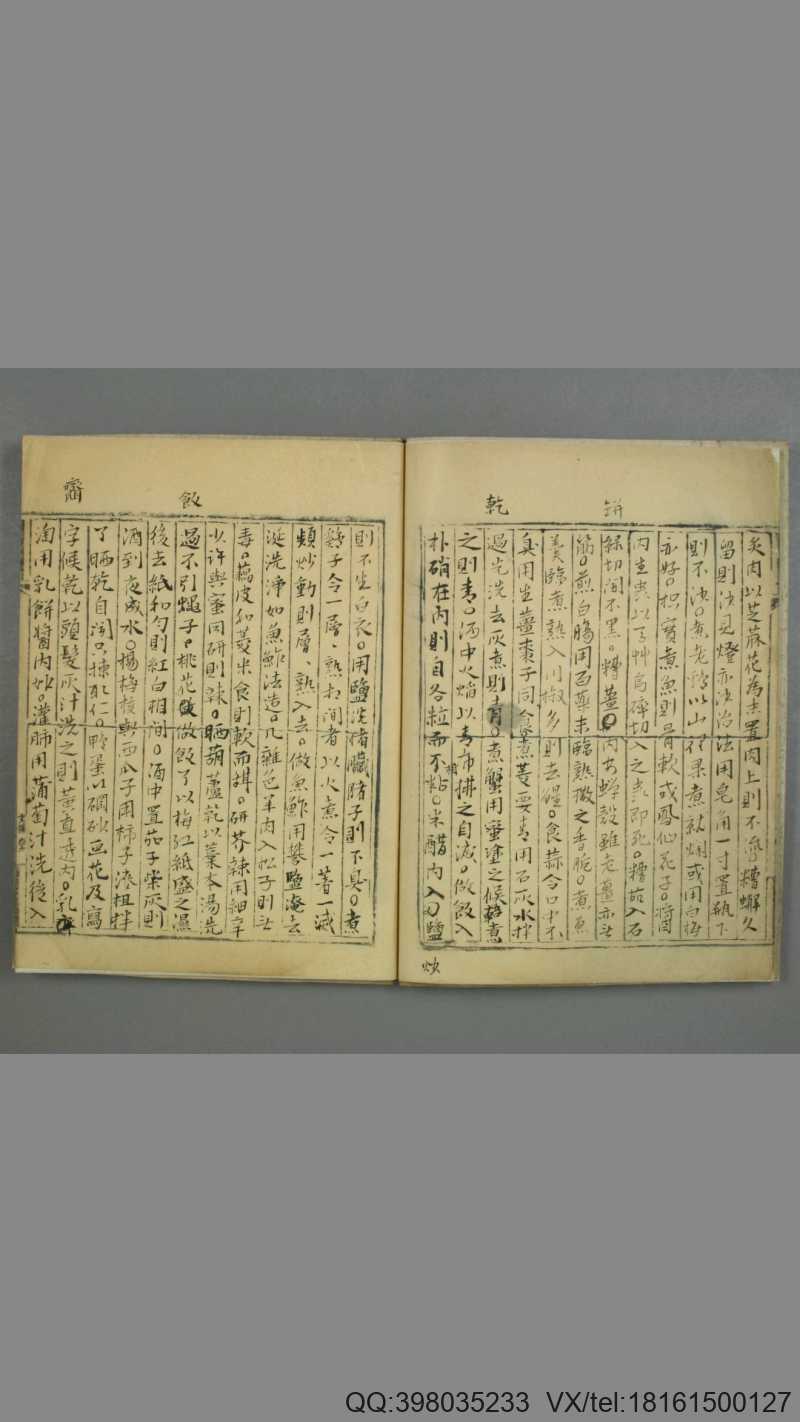 餅
乾
炙肉以芝蔴花為末置肉上則不
糟蠏久
留則沙見燈亦沙治法用皂角一寸置瓶下
則不沙○煮老鵝以山
果煮就爛或用白梅
亦好○枳實煮魚則骨軟或鳳仙花子○醬
內生
以
草烏碎切入之
即死○糟茄入石
綠切開不黑○糟薑
內安蟬殼雖老薑亦無
筋○煎白腸用百藥末臨熟撒之香脆○煮魚
羹臨煮熟入川椒多則去腥○食蒜令口中不
臭用生薑棗子同
煮菱要青用石灰水拌
過先洗去灰煮則青○煮蟹用蜜塗之候乾煮
之則青○酒中火焰以青布拂之自滅○做飯入
朴硝在內則自各粒而不相粘○米醋內入
鹽
炒
飯
齋
則不生白衣○用鹽洗猪臟肚子則下臭○煮
雞子令一層、熟相間者以火煮令一著一滅
頻炒動則層、熟入去○做魚鮓用礬鹽淹去
涎洗淨如魚鮓法造○凡雜色羊肉入松子則無
毒○藕皮和菱米食則軟而甜○研芥辣用細辛
少許與蜜同研則辣○晒葫蘆乾以藁本湯洗
過不引蠅子○桃花
做飯了以梅紅紙盛之濕
後去紙和勻則紅白相間○酒中置茄子柴灰則
酒到夜成水○楊梅核與西瓜子用柿子漆柤拌
了晒乾自開只揀取仁○鴨蛋以硇砂画花及寫
字候乾以頭髮灰汁洗之則黃直透內○乳餅
淘用乳餅醬內妙○灌肺用蒲萄汁洗後入
QQ:398035233 VX/tel:18161500127